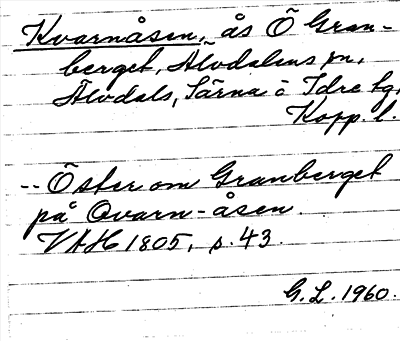 Kvarnåsen, ås Ö Gran-
berget, Älvdalens sn,
Älvdals, Särna o Idre tg,
Kopp. l.
-- Öster om Granberget
på Qvarn-åsen.
VAH 1805, s. 43.
G. L. 1960.